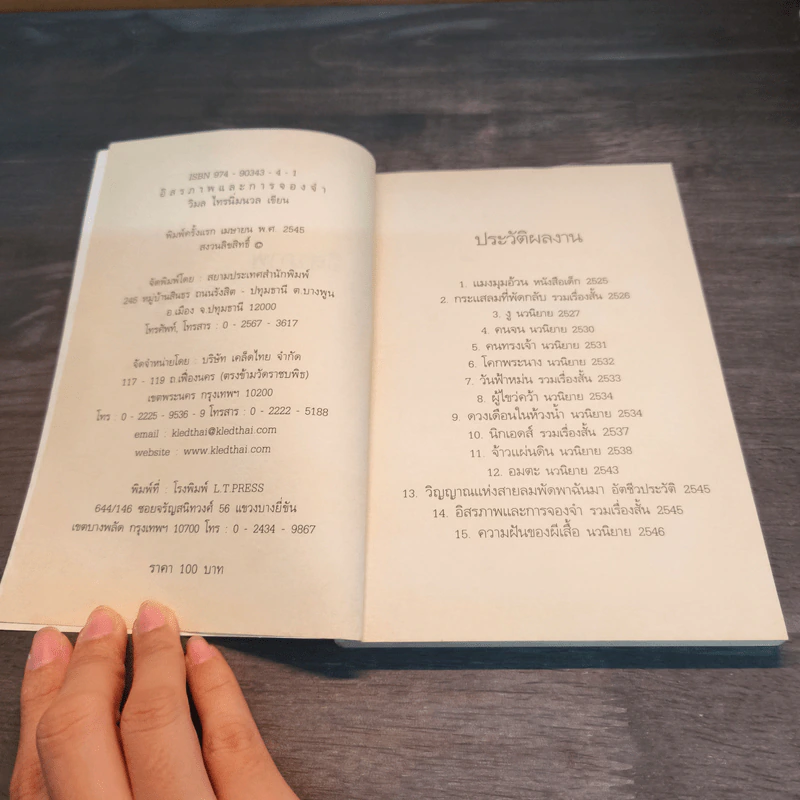 ISBN 974 - 90343 - 4 - 1
อิสรภาพและการจองจำ
วิมล ไทรนิ่มนวล เขียน
พิมพ์ครั้งแรก เมษายน พ.ศ. 2545
สงวนลิขสิทธิ์ ©
จัดพิมพ์โดย : สยามประเทศสำนักพิมพ์
245 หมู่บ้านสินธร ถนนรังสิต - ปทุมธานี ต.บางพูน
อ.เมือง จ.ปทุมธานี 12000
โทรศัพท์, โทรสาร : 0 - 2567 - 3617
จัดจำหน่ายโดย : บริษัท เคล็ดไทย จำกัด
117 - 119 ถ.เฟื่องนคร (ตรงข้ามวัดราชบพิธ)
เขตพระนคร กรุงเทพฯ 10200
โทร : 0 - 2225 - 9536 - 9 โทรสาร : 0 - 2222 - 5188
email : kledthai@kledthai.com
website : www.kledthai.com
พิมพ์ที่ : โรงพิมพ์ L.T.PRESS
644/146 ซอยจรัญสนิทวงศ์ 56 แขวงบางยี่ขัน
เขตบางพลัด กรุงเทพฯ 10700 โทร : 0 - 2434 - 9867
ราคา 100 บาท
ประวัติผลงาน
1. แมงมุมอ้วน หนังสือเด็ก 2525
2. กระแสลมที่พัดกลับ รวมเรื่องสั้น 2526
3. งู นวนิยาย 2527
4. คนจน นวนิยาย 2530
5. คนทรงเจ้า นวนิยาย 2531
6. โคกพระนาง นวนิยาย 2532
7. วันฟ้าหม่น รวมเรื่องสั้น 2533
8. ผู้ไขว่คว้า นวนิยาย 2534
9. ดวงเดือนในห้วงน้ำ นวนิยาย 2534
10. นิกเอตส์ รวมเรื่องสั้น 2537
11. จ้าวแผ่นดิน นวนิยาย 2538
12. อมตะ นวนิยาย 2543
13. วิญญาณแห่งสายลมพัดพาฉันมา อัตชีวประวัติ 2545
14. อิสรภาพและการจองจำ รวมเรื่องสั้น 2545
15. ความฝันของผีเสื้อ นวนิยาย 2546